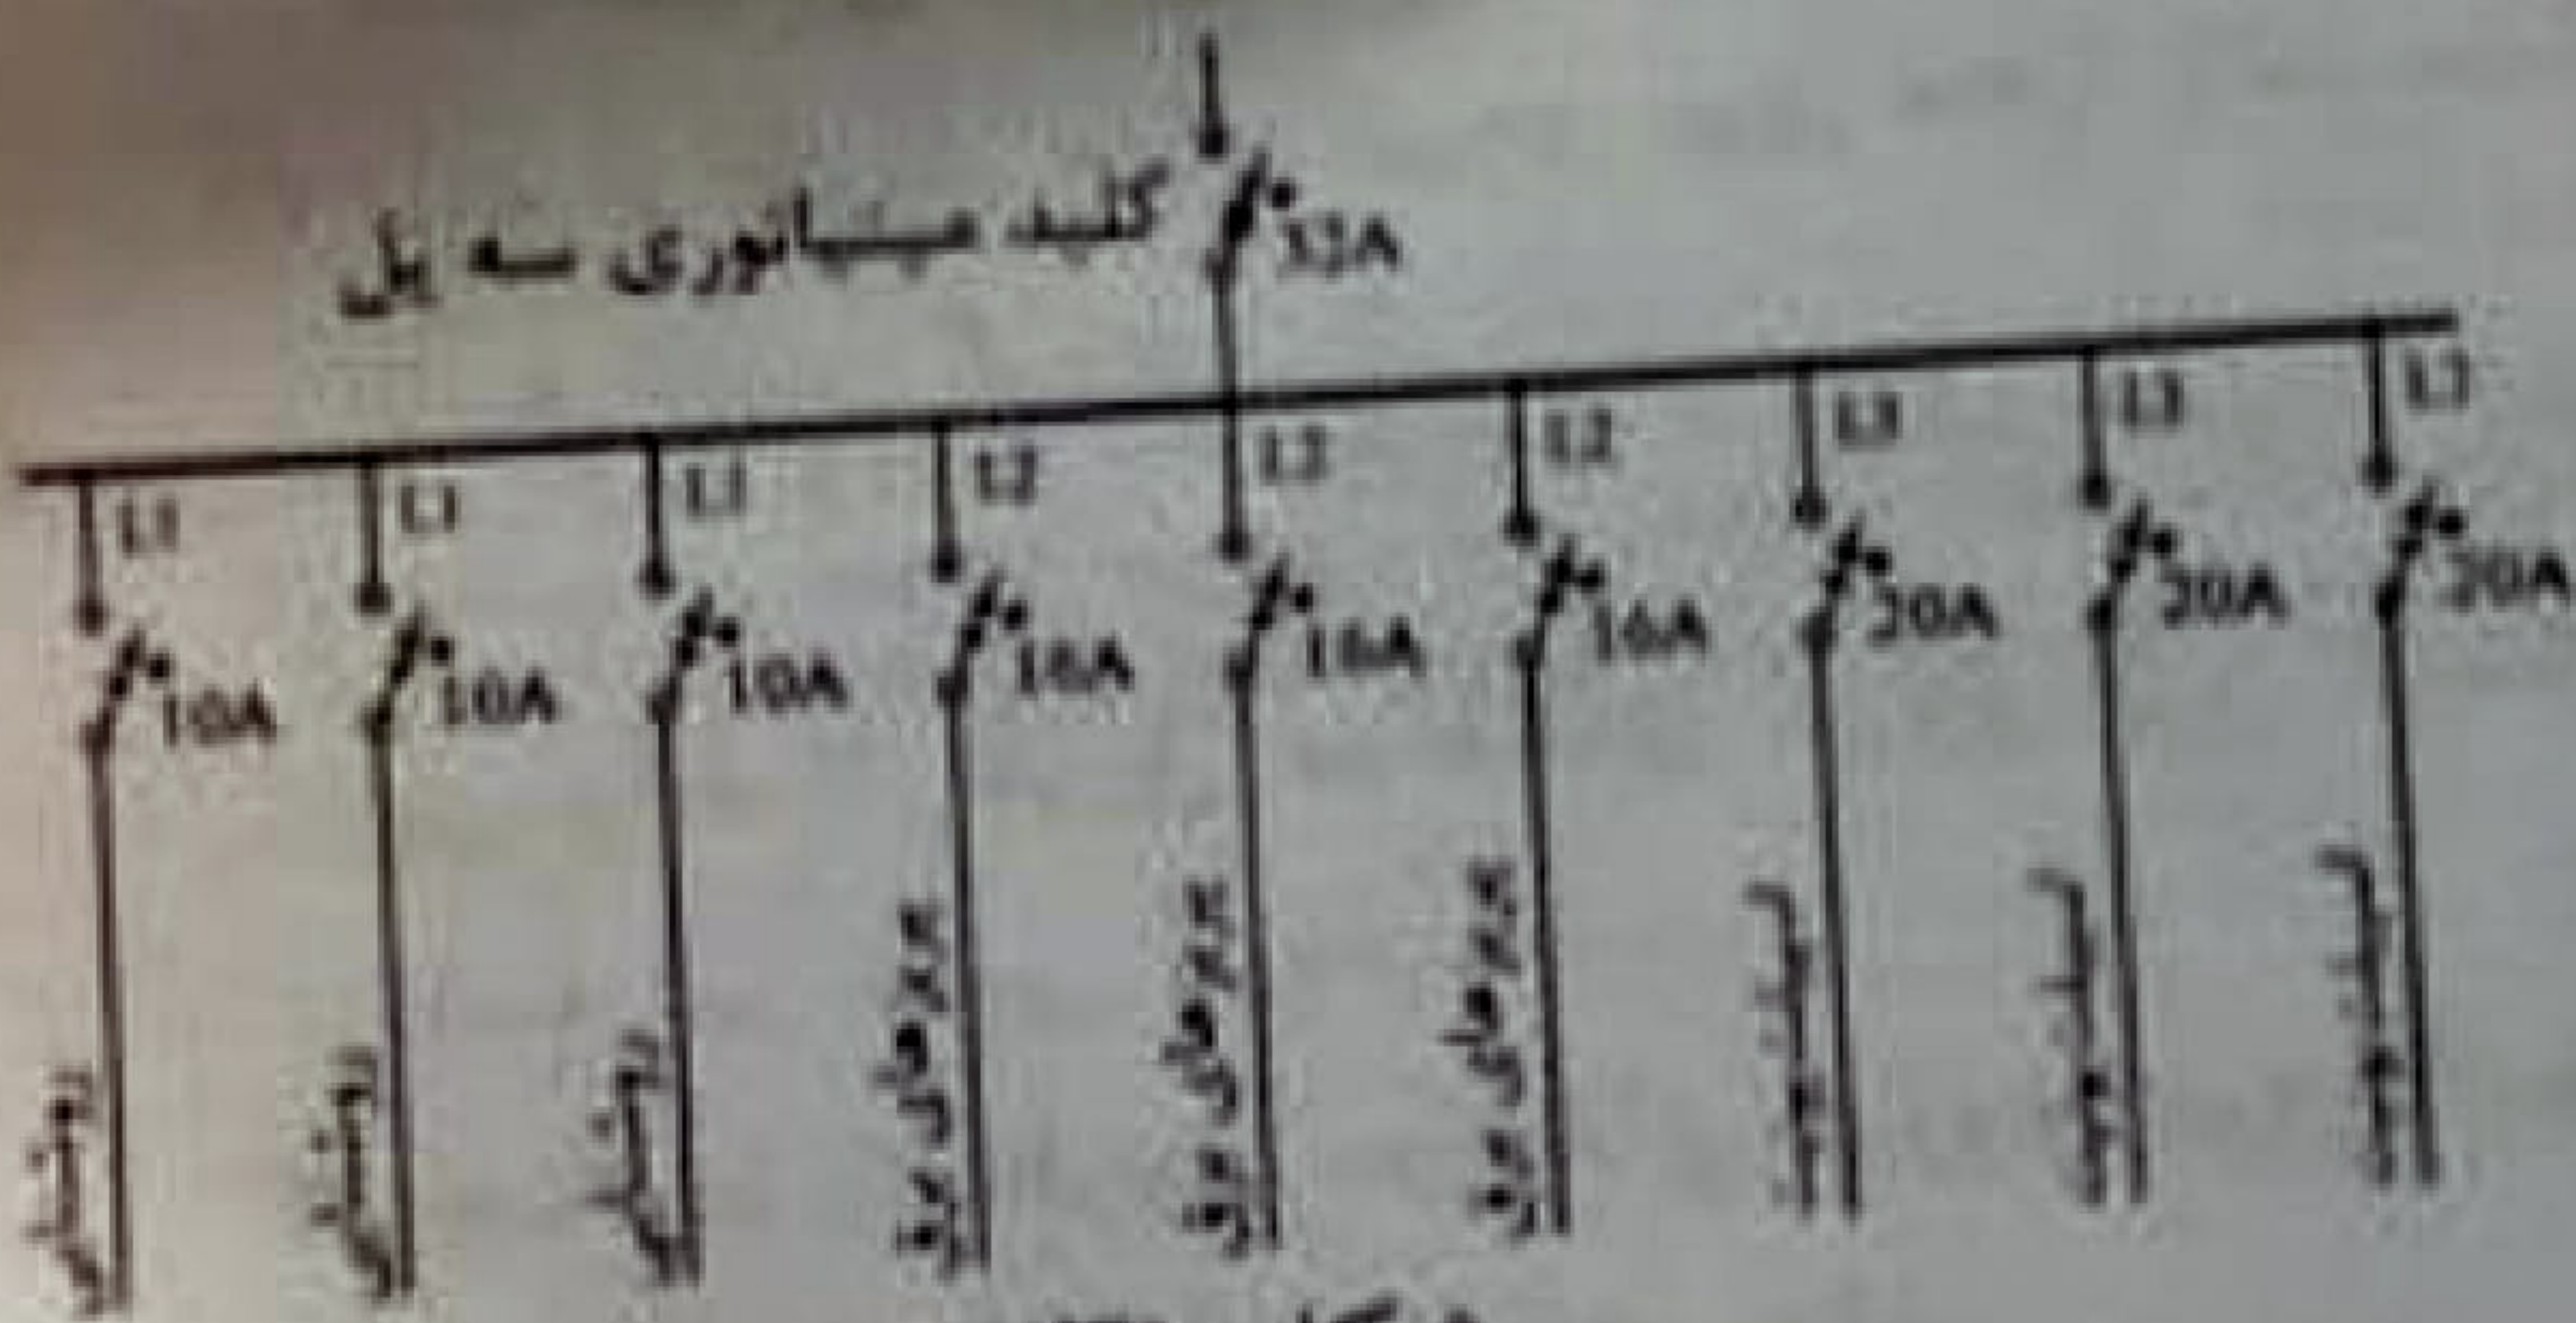 کلید مینیاتوری سه پل
32A
L1
L1
L1
L2
L2
L2
L3
L3
L3
10A
10A
10A
16A
16A
16A
20A
20A
20A
روشنایی
روشنایی
روشنایی
پریزهای برق
پریزهای برق
پریزهای برق